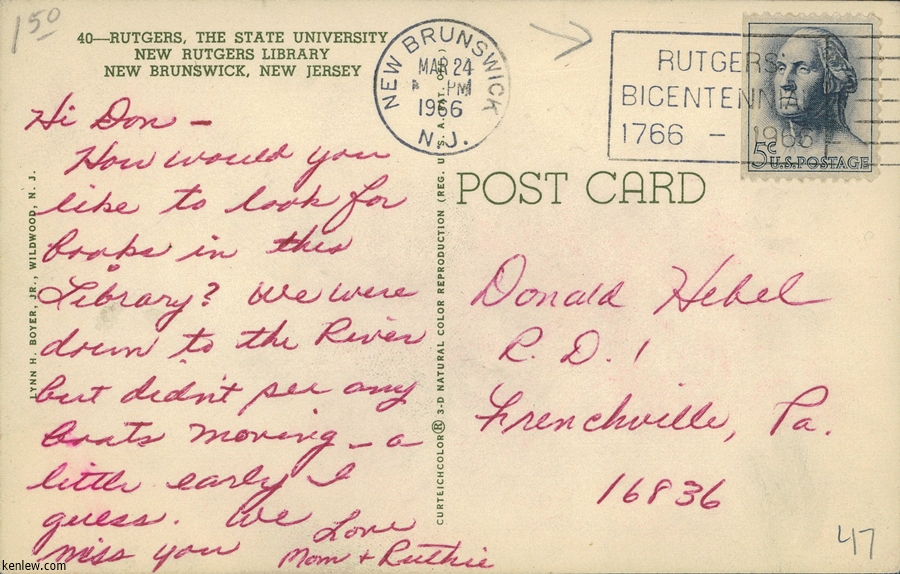 1 50
40—RUTGERS, THE STATE UNIVERSITY
NEW RUTGERS LIBRARY
NEW BRUNSWICK, NEW JERSEY
NEW BRUNSWICK
MAR 24
PM
1966
N. J.
RUTGERS
BICENTENNIAL
1766 – 1966
5¢ U.S. POSTAGE
POST CARD
Hi Don –
How would you
like to look for
books in this
Library? We were
down to the River
but didn't see any
boats moving – a
little early I
guess. We
miss you
Love
Mom + Ruthie
LYNN H. BOYER, JR., WILDWOOD, N. J.
CURTEICHCOLOR® 3-D NATURAL COLOR REPRODUCTION (REG. U. S. A. PAT. OFF.)
Donald Hebel
R. D. 1
Frenchville, Pa.
16836
47
kenlew.com